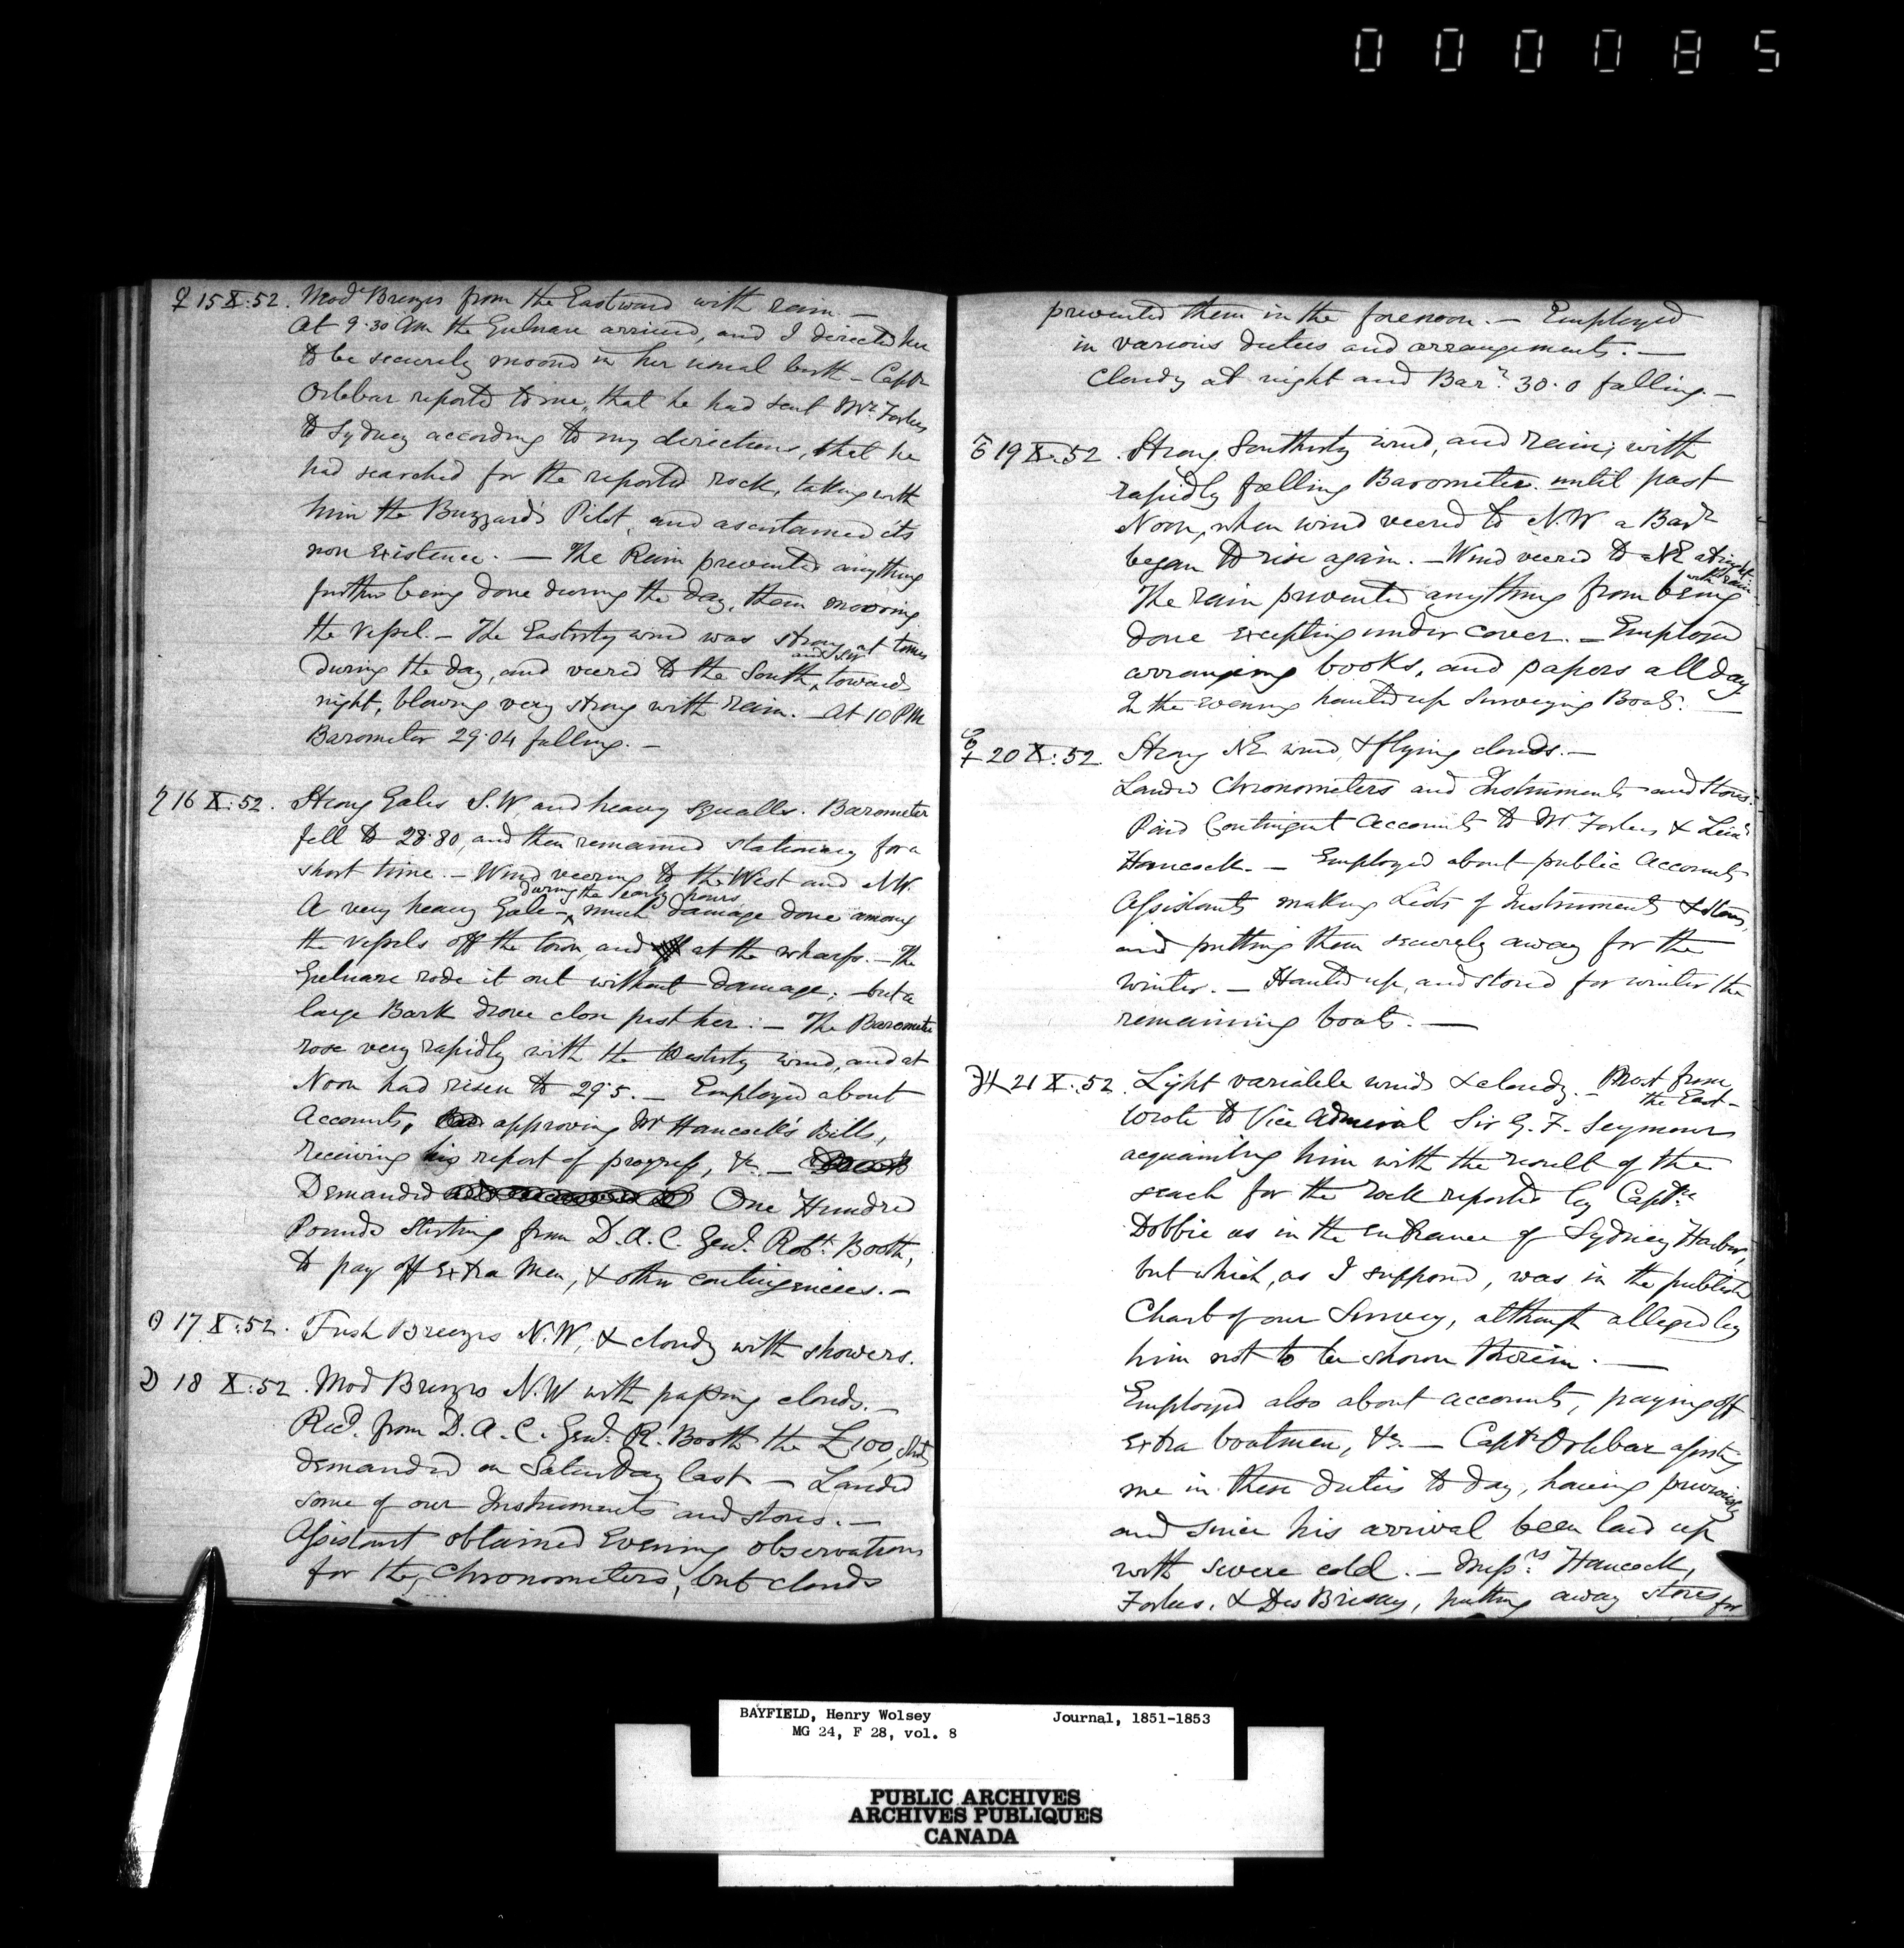 000085
♀ 15 X:52. Modᵉ Breezes from the Eastward with rain. —
At 9.30 AM the Gulnare arrived, and I directed her
to be securely moored in her usual berth — Captⁿ
Orlebar reported to me, that he had sent Mr. Forbes
to Sydney according to my directions, that he
had searched for the reported rock, taking with
him the Buzzard's Pilot, and ascertained its
non existence. — The Rain prevented anything
further being done during the day, than mooring
the vessel. — The Easterly wind was strong at times
during the day, and veered to the South, and SW towards
night, blowing very strong with rain. — At 10 PM
Barometer 29.04 falling. —
♄ 16 X:52. Strong Gales S.W. and heavy squalls. Barometer
fell to 28.80, and then remained stationary for a
short time. — Wind veering to the West and NW.
A very heavy Gale — during the early hours much damage done among
the vessels off the town, and at the wharfs. — The
Gulnare rode it out without damage; but a
large Bark drove close past her: — The Barometer
rose very rapidly with the Westerly wind, and at
Noon had risen to 29.5. — Employed about
Accounts, approving Mr Hancock's Bills,
receiving his report of progress, &c. —
Demanded One Hundred
Pounds sterling from D.A.C. Genl. Robt. Booth,
to pay off Extra Men, & other contingencies. —
☉ 17 X:52. Fresh Breezes N.W. & cloudy with showers.
☽ 18 X:52. Mod Breezes N.W with passing clouds. —
Recd. from D.A.C. Genl. R. Booth the £100, sterg
demanded on Saturday last — Landed
some of our Instruments and stores. —
Assistant obtained Evening observations
for the Chronometers, but clouds
prevented them in the forenoon. — Employed
in various duties and arrangements. —
Cloudy at night and Barʳ. 30.0 falling. —
♂ 19 X:52. Strong Southerly wind, and rain; with
rapidly falling Barometer until past
Noon, when wind veered to N.W. & Barʳ
began to rise again. — Wind veered to NE at night with rain.
The rain prevented anything from being
done excepting under cover. — Employed
arranging books, and papers all day
In the evening hauled up Surveying Boats. —
☿ 20 X:52. Strong NE wind, & flying clouds. —
Landed Chronometers and Instruments and Stores.
Paid Contingent Accounts to Mr. Forbes & Lieuᵗ
Hancock. — Employed about public Accounts
Assistants making Lists of Instruments & stores,
and putting them securely away for the
winter. — Hauled up, and stored for winter the
remaining boats. —
♃ 21 X:52. Light variable winds & cloudy. — Most from the East —
Wrote to Vice Admiral Sir G. F. Seymour
acquainting him with the result of the
search for the rock reported by Captⁿ.
Dobbie as in the entrance of Sydney Harbor,
but which, as I supposed, was in the published
Chart of our Survey, although alleged by
him not to be shown therein. —
Employed also about accounts, paying off
extra boatmen, &c. — Captⁿ Orlebar assisting
me in these duties to day, having previously
and since his arrival been laid up
with severe cold. — Messʳˢ. Hancock,
Forbes, & Des Brisay, putting away stores for
BAYFIELD, Henry Wolsey Journal, 1851-1853
MG 24, F 28, vol. 8
PUBLIC ARCHIVES
ARCHIVES PUBLIQUES
CANADA